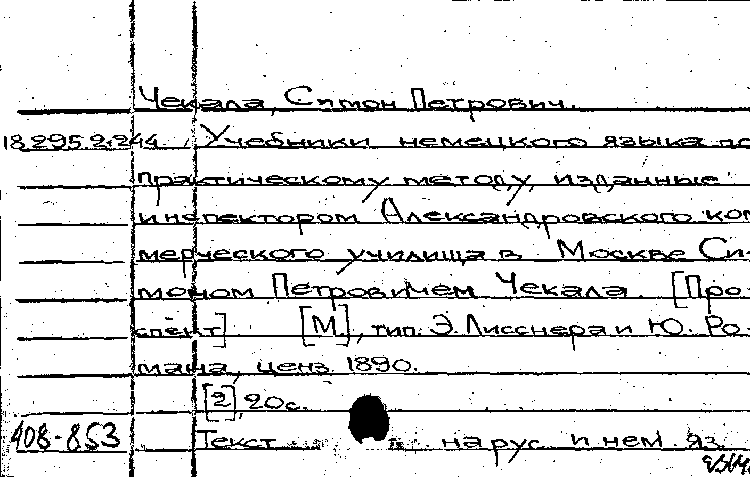 Чекала, Симон Петрович.
18.295.2.244 Учебники немецкого языка по
практическому методу, изданные
инспектором Александровского ком
мерческого училища в Москве Си-
моном Петровичем Чекала. [Про-
спект] [М.], тип. Э. Лисснера и Ю. Ро-
мана, ценз. 1890.
[2], 20 с.
408-853 Текст на рус. и нем. яз.